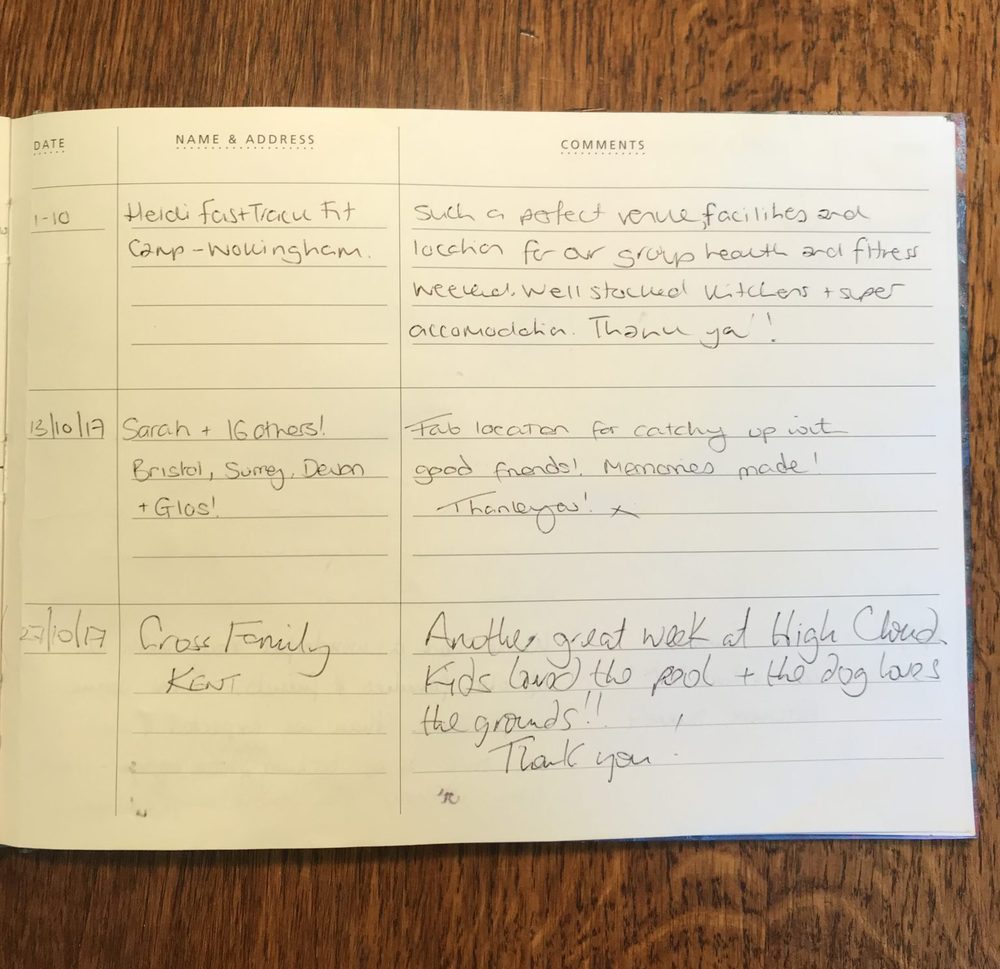 DATE NAME & ADDRESS COMMENTS
1-10 Heidi FastTrack Fit Such a perfect venue, facilities and
Camp - Wokingham. location for our group health and fitness
weekend. Well stocked kitchens + super
accomodation. Thank you!
13/10/17 Sarah + 16 others! Fab location for catching up with
Bristol, Surrey, Devon good friends! Memories made!
+ Glos! Thankyou! x
27/10/17 Cross Family Another great week at High Cloud.
KENT Kids loved the pool + the dog loves
the grounds!!
Thank you.